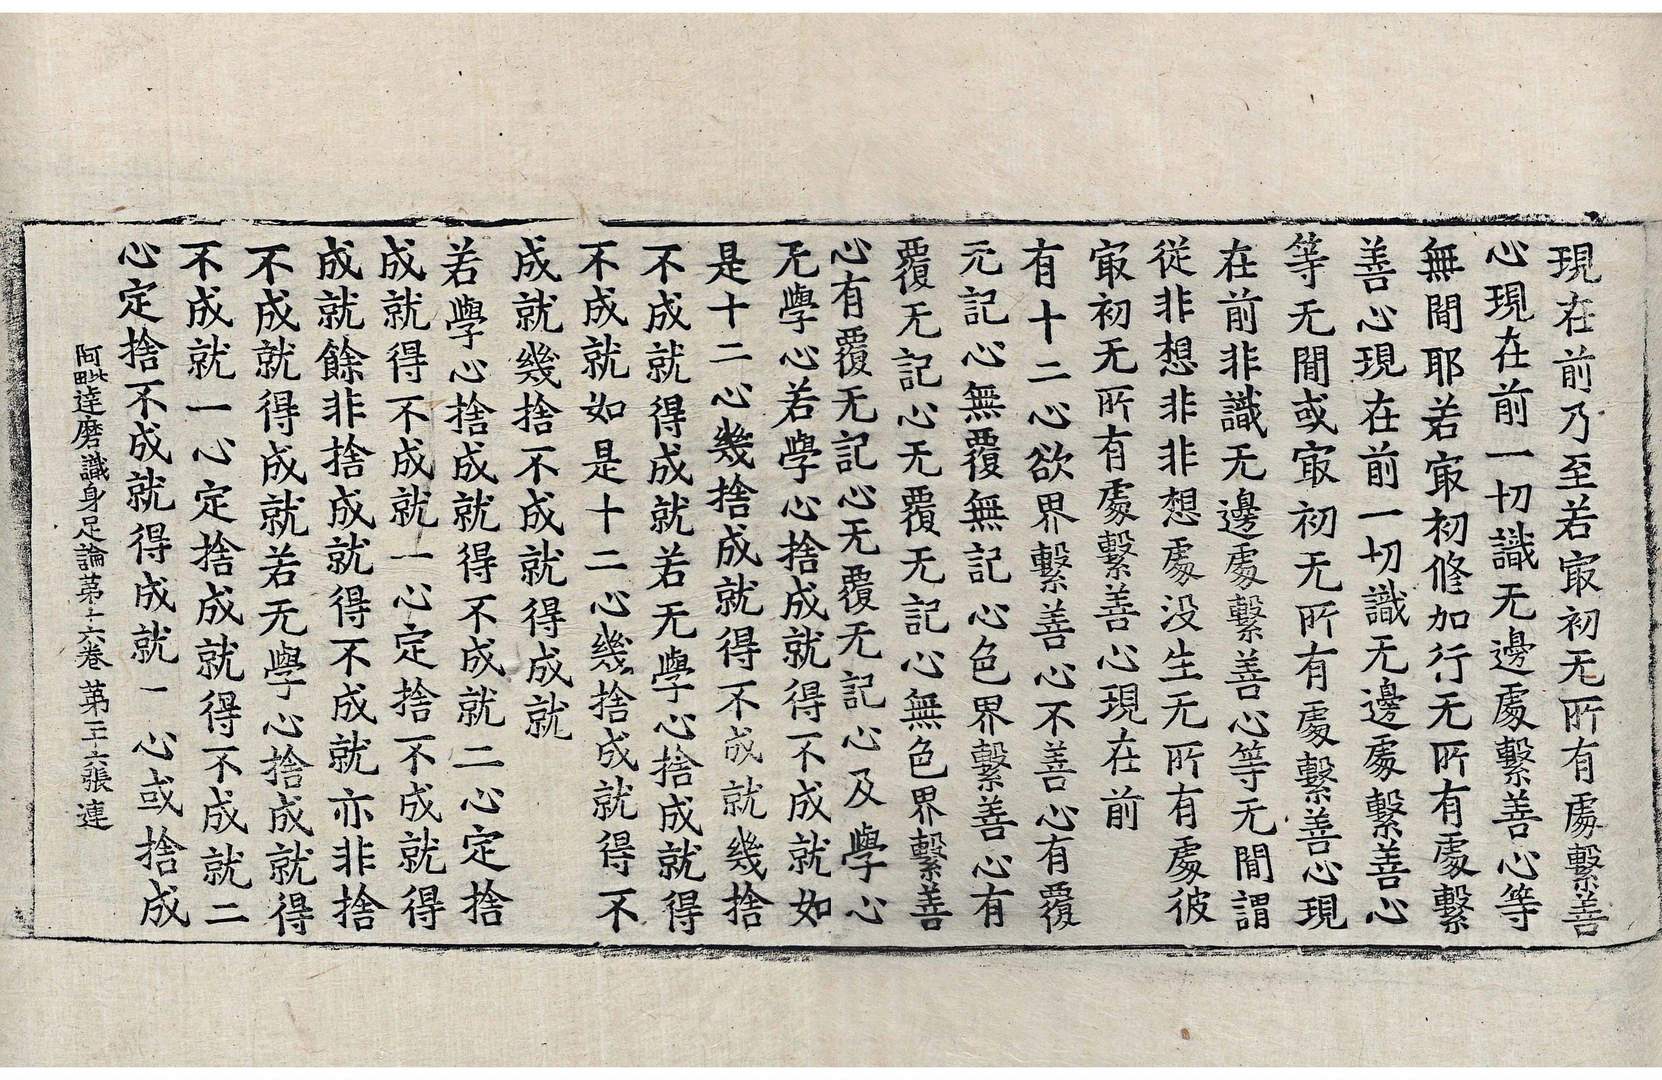 現在前乃至若㝡初无所有處繫善
心現在前一切識无邊處繫善心等
無間耶若㝡初修加行无所有處繫
善心現在前一切識无邊處繫善心
等无間或㝡初无所有處繫善心現
在前非識无邊處繫善心等无間謂
從非想非非想處没生无所有處彼
㝡初无所有處繫善心現在前
有十二心欲界繫善心不善心有覆
无記心無覆無記心色界繫善心有
覆无記心无覆无記心無色界繫善
心有覆无記心无覆无記心及學心
无學心若學心捨成就得不成就如
是十二心幾捨成就得不成就幾捨
不成就得成就若无學心捨成就得
不成就如是十二心幾捨成就得不
成就幾捨不成就得成就
若學心捨成就得不成就二心定捨
成就得不成就一心定捨不成就得
成就餘非捨成就得不成就亦非捨
不成就得成就若无學心捨成就得
不成就一心定捨成就得不成就二
心定捨不成就得成就一心或捨成
阿毗達磨識身足論第十六卷 第三十六張 連